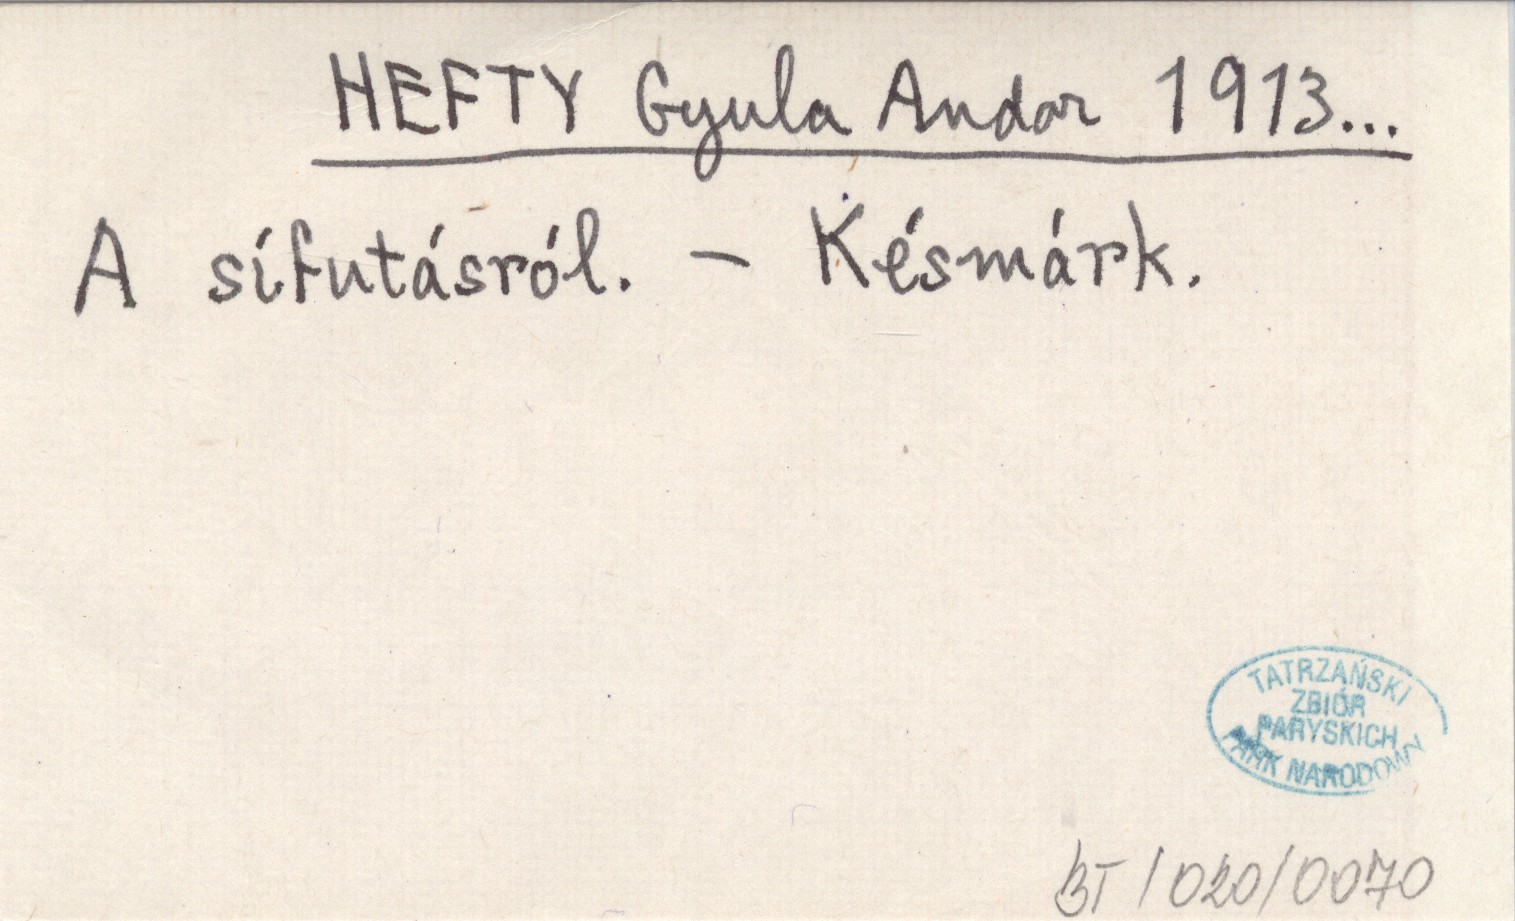 HEFTY Gyula Andor 1913...
A sífutásról. – Késmárk.
TATRZAŃSKI
ZBIÓR
PARYSKICH
PARK NARODOWY
BT/020/0070